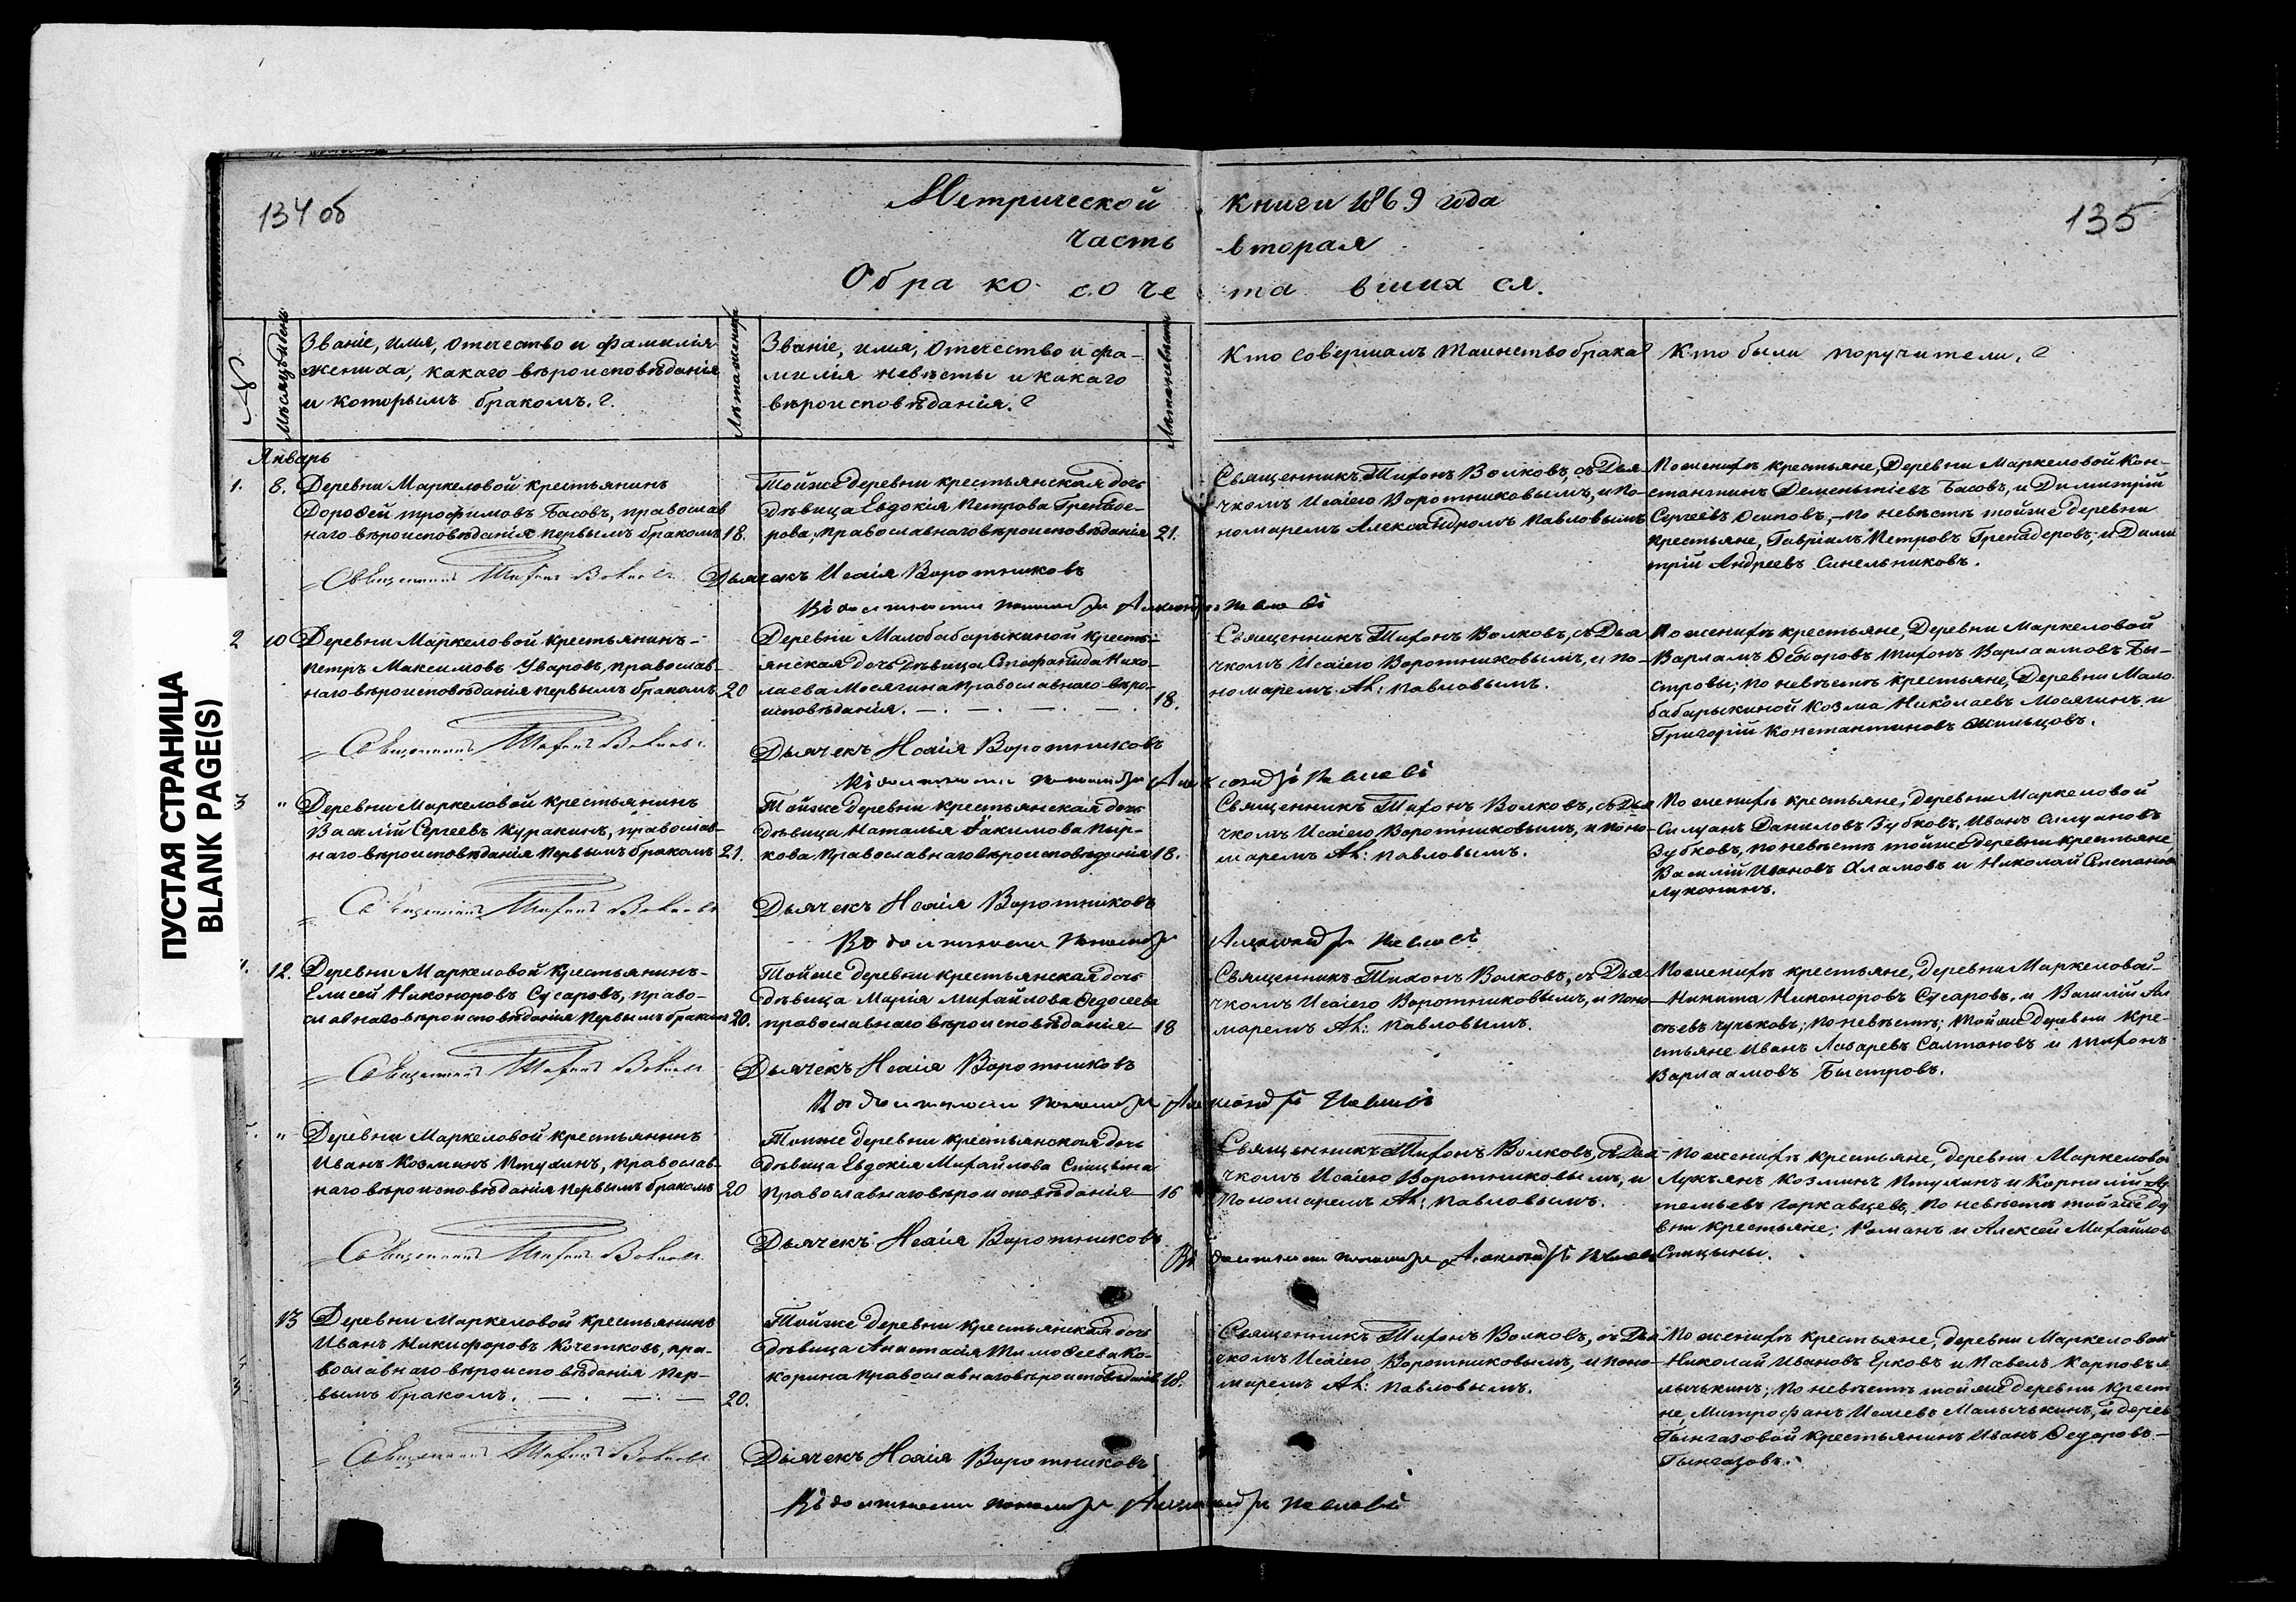 ПУСТАЯ СТРАНИЦА
BLANK PAGE(S)
134 об
135
Метрической книги 1869 года
часть вторая
О бракосочетавшихся.
№
Месяцъ и день
Званіе, имя, отечество и фамилія
жениха, какаго вѣроисповѣданія
и которымъ бракомъ.?
Лѣта жениха
Званіе, имя, отечество и фа-
милія невѣсты и какаго
вѣроисповѣданія.?
Лѣта невѣсты
Кто совершалъ таинство брака?
Кто были поручители.?
Январь
1. 8. Деревни Маркеловой крестьянинъ
Дорофей Трофимовъ Басовъ, православ
наго вѣроисповѣданія первымъ бракомъ 18.
Тойже деревни крестьянская дочь
дѣвица Евдокія Петрова Гренаде-
рова, православнаго вѣроисповѣданія 21.
Священникъ Тихонъ Волковъ, съ Дья
чкомъ Исаіею Воротниковымъ, и По-
номаремъ Александромъ Павловымъ
По женихѣ крестьяне, Деревни Маркеловой Кон-
стантинъ Деменьтіевъ Басовъ, и Димитрій
Сергеевъ Осиповъ,- по невѣстѣ тойже деревни
крестьяне, Гавріилъ Петровъ Гренадеровъ, и Дими
трій Андреевъ Синельниковъ.
Священникъ Тихонъ Волковъ
Дьячекъ Исаія Воротниковъ
Въ должности пономаря Александръ Павловъ
2 10 Деревни Маркеловой крестьянинъ-
Петръ Максимовъ Уваровъ, православ-
наго вѣроисповѣданія первымъ бракомъ 20
Деревни Малобабарыкиной кресть-
янская дочь дѣвица Стефанида Нико-
лаева Мосягина православнаго вѣро-
исповѣданія. 18.
Священникъ Тихонъ Волковъ, съ Дья
чкомъ Исаіею Воротниковымъ, и по-
номаремъ Ал: Павловымъ.
По женихѣ крестьяне, Деревни Маркеловой
Варламъ Ѳедоровъ Тихонъ Варлаамовъ Бы-
стровы; по невѣстѣ крестьяне, Деревни Мало-
бабарыкиной Козма Николаевъ Мосягинъ и
Григорій Константиновъ Жильцовъ.
Священникъ Тихонъ Волковъ
Дьячекъ Исаія Воротниковъ
Въ должности пономаря Александръ Павловъ
3 " Деревни Маркеловой крестьянинъ
Василій Сергеевъ Куракинъ, православ-
наго вѣроисповѣданія первымъ бракомъ 21.
Тойже деревни крестьянская дочь
дѣвица Наталья Іакимова Пыр-
кова православнаго вѣроисповѣданія 18.
Священникъ Тихонъ Волковъ, съ Дья
чкомъ Исаіею Воротниковымъ, и поно-
маремъ Ал: Павловымъ.
По женихѣ крестьяне, деревни Маркеловой
Силуанъ Даниловъ Зубковъ, Иванъ Силуановъ
Зубковъ, по невѣстѣ тойже деревни крестьяне,
Василій Ивановъ Хламовъ и Николай Степанов
Луконинъ.
Священникъ Тихонъ Волковъ
Дьячекъ Исаія Воротниковъ
Въ должности пономаря Александръ Павловъ
12. Деревни Маркеловой крестьянинъ-
Елисей Никоноровъ Сусаровъ, право-
славнаго вѣроисповѣданія первымъ бракомъ 20.
Тойже деревни крестьянская дочь
дѣвица Марія Михайлова Ѳедосеева
православнаго вѣроисповѣданія 18
Священникъ Тихонъ Волковъ, съ Дья
чкомъ Исаіею Воротниковымъ, и поно-
маремъ Ал: Павловымъ.
По женихѣ крестьяне, деревни Маркеловой-
Никита Никоноровъ Сусаровъ, и Василій
по невѣстѣ; тойже деревни кре-
стьяне Иванъ Лазаревъ Салтановъ и Тихонъ
Варлаамовъ Быстровъ.
Священникъ Тихонъ Волковъ
Дьячекъ Исаія Воротниковъ
Въ должности пономаря Александръ Павловъ
" Деревни Маркеловой крестьянинъ
Иванъ Козминъ Птухинъ, православ-
наго вѣроисповѣданія первымъ бракомъ 20
Тойже деревни крестьянская дочь
дѣвица Евдокія Михайлова Спицына
православнаго вѣроисповѣданія 16
Священникъ Тихонъ Волковъ, съ Дья-
чкомъ Исаіею Воротниковымъ, и
пономаремъ Ал: Павловымъ.
По женихѣ крестьяне, деревни Маркеловой
Лукьянъ Козминъ Птухинъ и Корнилій
Горкавцевъ, по невѣстѣ тойже де
вни крестьяне; Романъ и Алексей Михайлов
Спицыны.
Священникъ Тихонъ Волковъ
Дьячекъ Исаія Воротниковъ
Въ должности пономаря Александръ Павловъ
13 Деревни Маркеловой крестьянинъ
Иванъ Никифоровъ Кочетковъ, пра-
вославнаго вѣроисповѣданія пер-
вымъ бракомъ. 20.
Тойже деревни крестьянская дочь
дѣвица Анастасія Тимоѳеева Ко-
корина православнаго вѣроисповѣданія 18.
Священникъ Тихонъ Волковъ, съ Дья
чкомъ Исаіею Воротниковымъ, и поно-
маремъ Ал: Павловымъ.
По женихѣ крестьяне, деревни Маркеловой
Николай Ивановъ Ерковъ и Павелъ Карповъ
по невѣстѣ тойже деревни крестья
не, Митрофанъ Исаевъ Малычькинъ, и дерев
Гынгазовой крестьянинъ Иванъ Ѳедоровъ-
Гынгазовъ.
Священникъ Тихонъ Волковъ
Дьячекъ Исаія Воротниковъ
Въ должности пономаря Александръ Павловъ